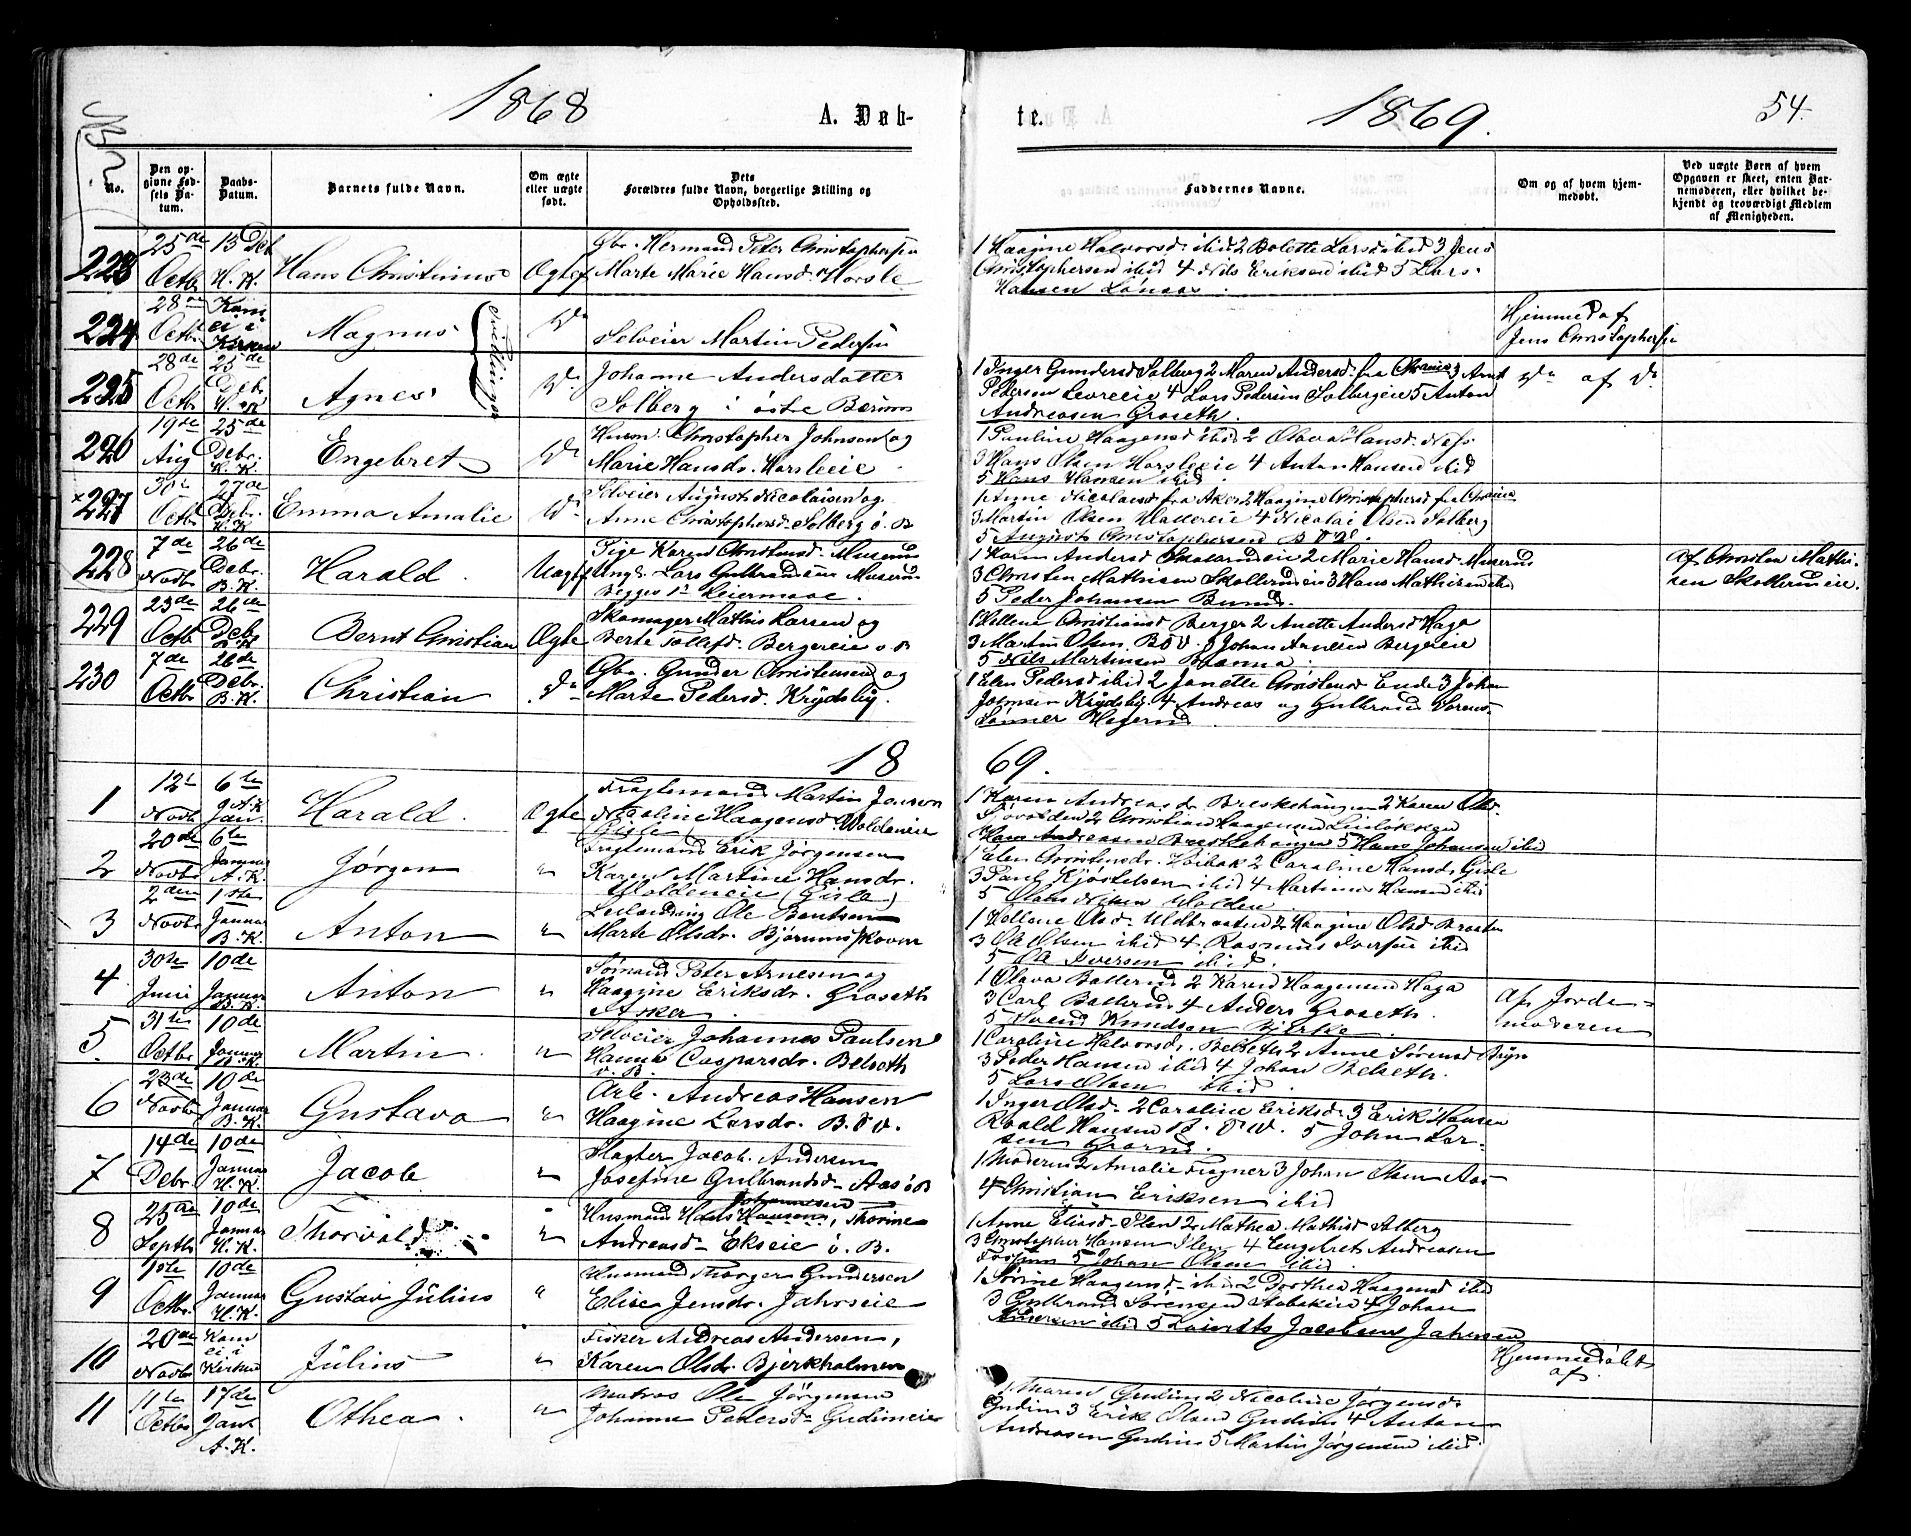 1868
A. Døb-
te.
1869.
54.
No.
Den op-
givne Fød-
sels Da-
tum.
Daabs-
Datum.
Barnets fulde Navn.
Om ægte
eller uægte
født.
Dets
Forældres fulde Navn, borgerlige Stilling og
Opholdssted.
Faddernes Navne.
Om og af hvem hjem-
medøbt.
Ved uægte Børn af hvem
Opgaven er skeet, enten Bar-
nemoderen, eller hvilket be-
kjendt og troværdigt Medlem
af Menigheden.
223
25de
Octb
13 Deb
H. K.
Hans Christinius
Ægte
Gbr. Hermand Peter Christophersen
Marte Marie Hansd. Horsle
1 Haagine Halvorsd. ibid 2 Bolette Larsd ibid 3 Jens
Christophersen ibid 4 Nils Eriksen ibid 5 Lars
Hansen Lønaas.
224
28de
Octb
Kom
ei i
Kirken
Magnus
Tvillinger
Do
Selveier Martin Pedersen
Hjemmed af
Jens Christophersen
225
28de
Octb
25de
Debr
H. K.
Agnes
Do
Johanne Andersdatter
Solberg i østre Bærum
1 Inger Gundersd Solberg 2 Maren Andersd. fra Chrania 3 Arnt
Pedersen Levreeie 4 Lars Pedersen Solbergeie 5 Anton
Andreasen Groseth.
Do af Do
226
19de
Aug
25de
Debr.
H. K.
Engebret
Do
Husm. Christopher Johnsen og
Marie Hansdr. Horsleeie
1 Pauline Haagensd ibid 2 Olava Hansd. Næs
3 Hans Olsen Horsleeie 4 Anton Hansen ibid
5 Hans Hansen ibid.
×227
30te
Octb
27de
Debr.
H. K.
Emma Amalie
Do
Selveier August Nicolaisen og
Anne Christophersd. Solberg ø. B
1 Anne Nicolaisd fra Aker 2 Haagine Christophersd fra Chrania
3 Martin Olsen Hallereie 4 Nicolai Olsen Solberg
5 August Christophersen
228
7de
Novbr
26de
Debr.
B. K.
Harald.
Uægte
Pige Karen Christensd. Muserud
Ungk. Lars Gulbrandsen Muserud
Begges 1st Leiermaal.
1 Karen Andersd Skollerudeie 2 Marie Hansd. Muserud
3 Christen Mathisen Skollerudeie 3 Hans Mathisen ibid
5 Peder Johansen Bunæs.
af Christen Mathi-
sen Skollerudeie.
229
23de
Octb
26de
Debr
B. K.
Bernt Christian
Ægte
Skomager Mathis Larsen og
Berte Tollefsd. Bergereie v. B
1 Hellene Christiansd Berger 2 Anette Andersd Haga
3 Martin Olsen 3 Johan Bergereie
5 Nils Martinsen
230
7de
Octbr
26de
Debr.
B. K.
Christian
Do
Gbr. Gunder Christensen og
Marte Pedersd. Krydsby.
1 Elen Pedersd ibid 2 Janette Christensd Ende 3 Johan
Johnsen Krydsby. 4 Andreas og Gulbrand Sorens-
Sønner Hagerud
1869.
1
12te
Novbr
6te
Jan.
Harald.
Ægte
Fragtemand Martin Jensen
Nicoline Haagensd. Woldeneie
(Gisle)
1 Karen Andreasdr Breskehaugen 2 Karen Olsd.
2 Christian Haagensen Linløkken
Hans Andreassen Breskehaugen 5 Hans Johansen ibid
2
20de
Novbr
6te
Januar
A. K.
Jørgen
"
Fragtemand Erik Jørgensen
Karen Martine Hansdr.
Woldeneie (Gisle)
1 Elen Christensdr. 2 Caroline Hansd. Gisle
3 Paul Kjøstelsen ibid 4 Martinus Hansen ibid
5 Olaus Nilsen Wolden.
3
2den
Novbr
1ste
Januar
B. K.
Anton
"
Leilænding Ole Bentsen
Marte Olsdr. Bjørumsskoven
1 Hellene Olsd. Uldbraaten 2 Haagine Olsd Braaten
3 Ole Olsen ibid 4 Rasmus Iversen ibid
5 Ole Iversen ibid.
4
30te
Juni
10de
Januar
B. K.
Anton
"
Sømand Peter Arnesen og
Haagine Eriksdr. Groseth
Asker.
1 Olava Ballerud 2 Karen Haagensen Haga
3 Carl Ballerud 4 Anders Groseth.
5 Svend Knudsen Bjerke.
af Jorde-
moderen
5.
31te
Octbr
10de
Januar
B. K.
Martin
"
Selveier Johannes Paulsen
Hanna Caspersdr. Belseth
v. B.
1 Caroline Halvorsdr. Belseth 2 Anne Sørensd Bryn
3 Peder Hansen ibid 4 Johan Belseth.
5 Lars Olsen ibid.
6
23de
Novbr
10de
Januar
B. K.
Gustava
"
Arb. Andreas Hansen
Haagine Larsdr. B. Ø V.
1 Inger Olsd. 2 Caroline Eriksd. 3 Erik Hansen
Roald Hansen B. Ø V. 5 John Lar-
sen
7
14de
Debr.
10de
Januar
H. K.
Jacob
"
Slagter Jacob Andersen
Josefine Gulbrandsd. Aas ø B
1 Moderen 2 Amalie Fragner 3 Johan Olsen Aas
4 Christian Eriksen ibid
8
25de
Septbr
10de
Januar
H. K.
Thorvald
"
Johannesen
Husmand Hans Hansen, Thorine
Andreasd. Ekseie ø. B.
1 Anne Eliasd. Ilen 2 Mathea Mathisd Alberg
3 Christopher Hansen Ilen 4 Engebret Andreasen
5 Johan Olsen ibid.
9
1ste
Octbr
10de
Januar
H. K.
Gustav Julius
"
Husmand Thorger Gundersen
Elise Jensdr. Jahrseie
1 Sørine Haagensd. ibid 2 Dorthea Haagensd ibid
3 Gulbrand Sørensen Stabekeie 4 Johan
Andersen ibid 5 Lauritz Jacobsen Jahrseie
10
20de
Novbr
Kom
ei i
Kirken
Julius
"
Fisker Andreas Andersen,
Karen Olsdr. Bjerkholmen
Hjemmedøbt
af.
11
11te
Octbr
17de
Jan.
A. K.
Othea.
"
Matros Ole Jørgensen
Johanne Pedersd. Gudimeie
1. Maren Gudim 2 Nicoline Jørgensd.
Gudim 3 Erik Olsen Gudim 4 Anton
Andreasen Gudim 5 Martin Jørgensen ibid.